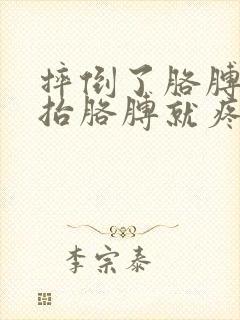 摔倒了胳膊
抬胳膊就疼
李宗泰